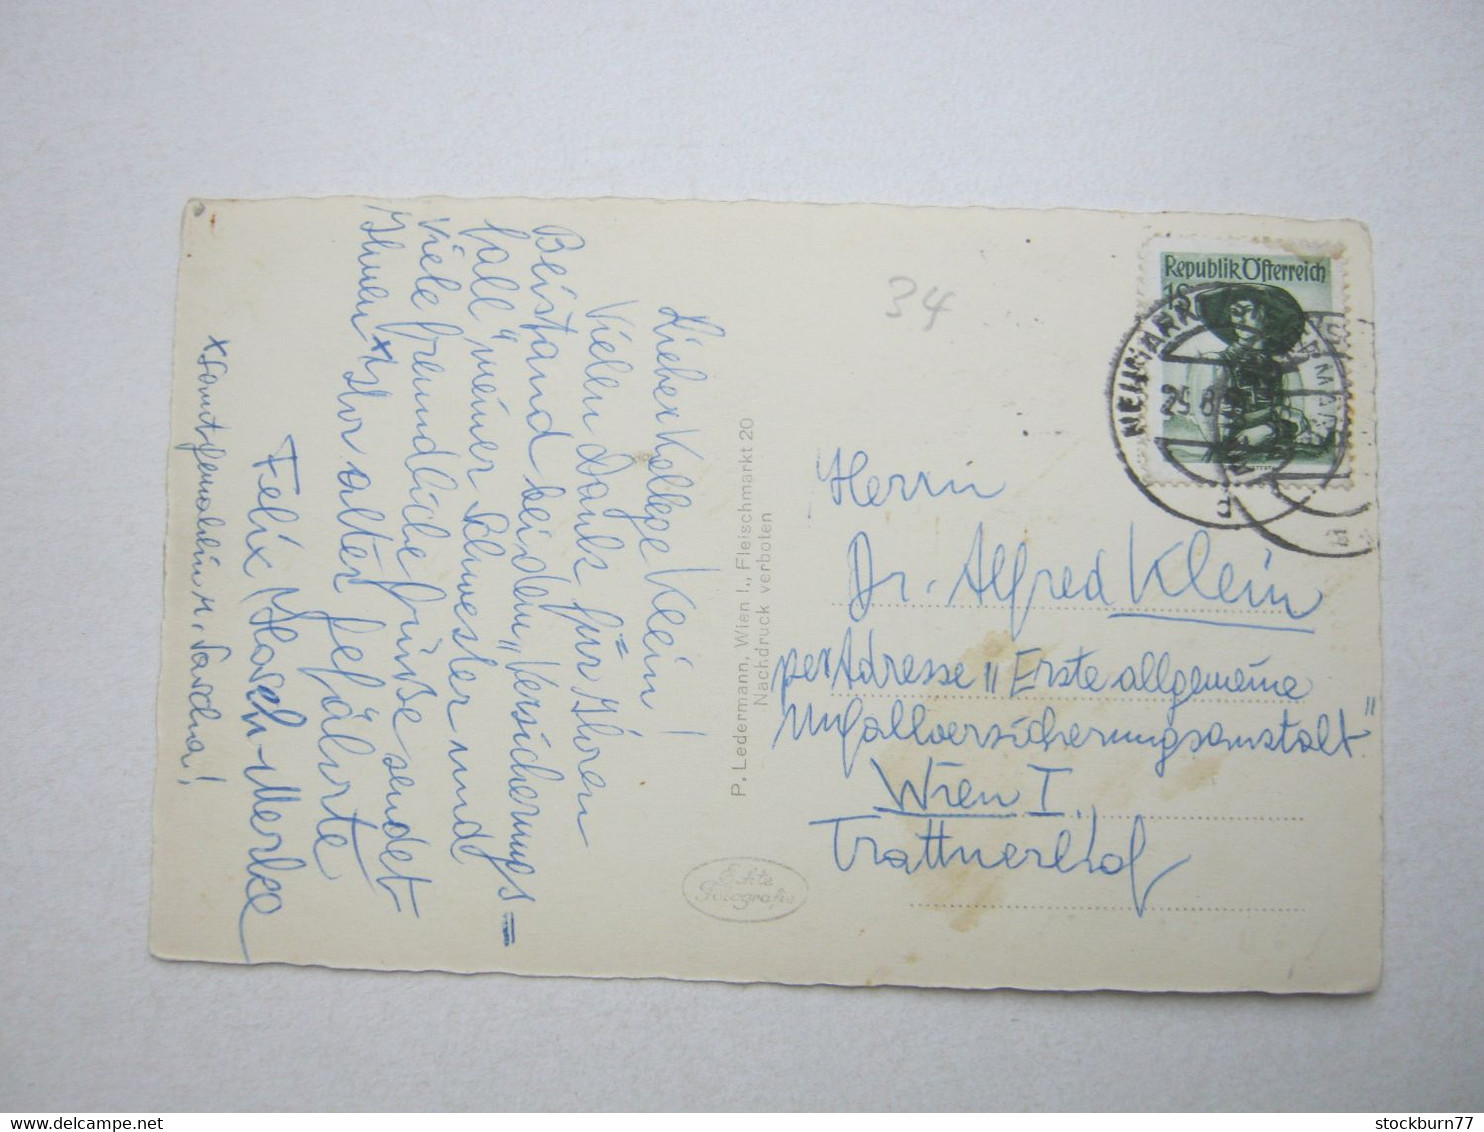 Lieber Kollege Klein!
Vielen Dank für Ihren
Beistand bei dem „Versicherungs=
fall" meiner Schwester und
viele freundliche Grüße sendet
Ihnen x Ihr alter Gefährte
Felix
x samt Gemahlin u. Sascha!
P. Ledermann, Wien I., Fleischmarkt 20
Nachdruck verboten
Echte
Fotografie
34
Republik Österreich
NEUMARKT
Herrn
Dr. Alfred Klein
per Adresse „Erste allgemeine
Unfallversicherungsanstalt"
Wien I.,
Trattnerhof
stockburn77